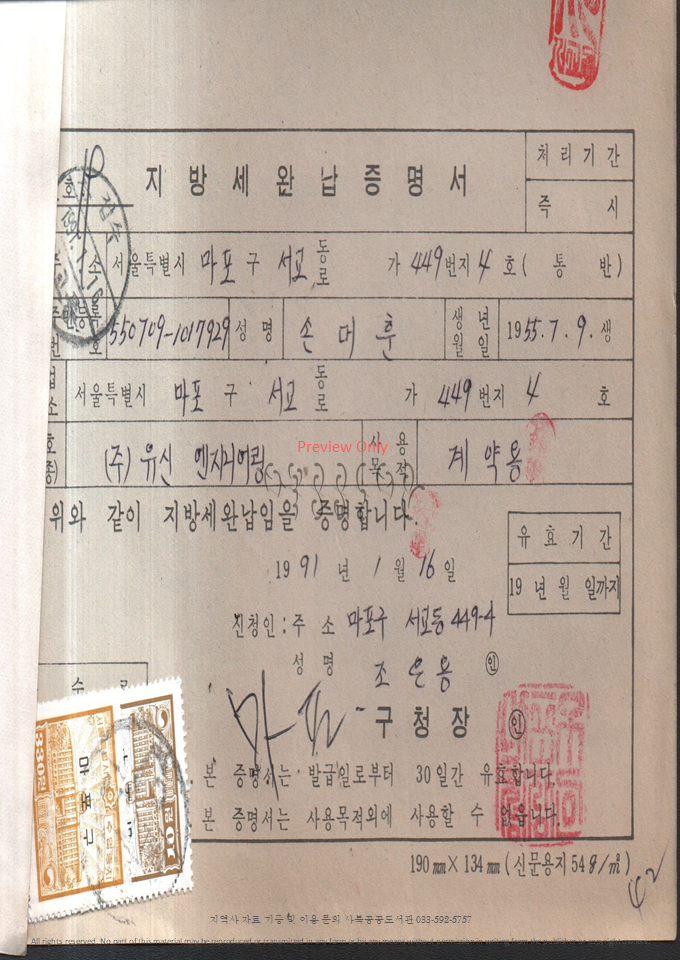 지방세완납증명서
처리기간
즉 시
소 서울특별시 마포구 서교 동로 가 449번지 4호( 통 반)
주민등록번호 550709-1017929 성명 손머훈 생년월일 1955.7.9.생
서울특별시 마포구 서교 동로 가 449번지 4 호
(주) 유신 엔지니어링 사용목적 계약용
Preview Only
위와 같이 지방세완납임을 증명합니다.
유효기간
19 년 월 일까지
1991년 1월 16일
신청인: 주소 마포구 서교동 449-4
성명 조은용 ㊞
수
마포 구청장 ㊞
본 증명서는 발급일로부터 30일간 유효합니다.
본 증명서는 사용목적외에 사용할 수 없읍니다.
190㎜×134㎜(신문용지 54g/㎡)
42
지역사 자료 기증 및 이용 문의 사북공공도서관 033-592-5757
All rights reserved. No part of this material may be reproduced or transmitted in any form or by any means without